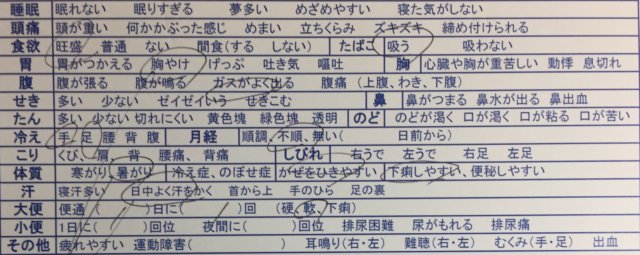 睡眠 眠れない 眠りすぎる 夢多い めざめやすい 寝た気がしない
頭痛 頭が重い 何かかぶった感じ めまい 立ちくらみ ズキズキ 締め付けられる
食欲 旺盛 普通 ない 間食(する しない) たばこ 吸う 吸わない
胃 胃がつかえる 胸やけ げっぷ 吐き気 嘔吐 胸 心臓や胸が重苦しい 動悸 息切れ
腹 腹が張る 腹が鳴る ガスがよく出る 腹痛 (上腹、わき、下腹)
せき 多い 少ない ゼイゼイいう せきこむ 鼻 鼻がつまる 鼻水が出る 鼻出血
たん 多い 少ない 切れにくい 黄色塊 緑色塊 透明 のど のどが渇く 口が渇く 口が粘る 口が苦い
冷え 手 足 腰 背 腹 月経 順調、不順、無い( 日前から)
こり くび、肩、背 腰痛、背痛 しびれ 右うで 左うで 右足 左足
体質 寒がり、暑がり 冷え症、のぼせ症 かぜをひきやすい 下痢しやすい、便秘しやすい
汗 寝汗多い 日中よく汗をかく 首から上 手のひら 足の裏
大便 便通 ( )日に( )回 (硬、軟、下痢)
小便 1日に( )回位 夜間に( )回位 排尿困難 尿がもれる 排尿痛
その他 疲れやすい 運動障害( ) 耳鳴り(右・左) 難聴(右・左) むくみ(手・足) 出血